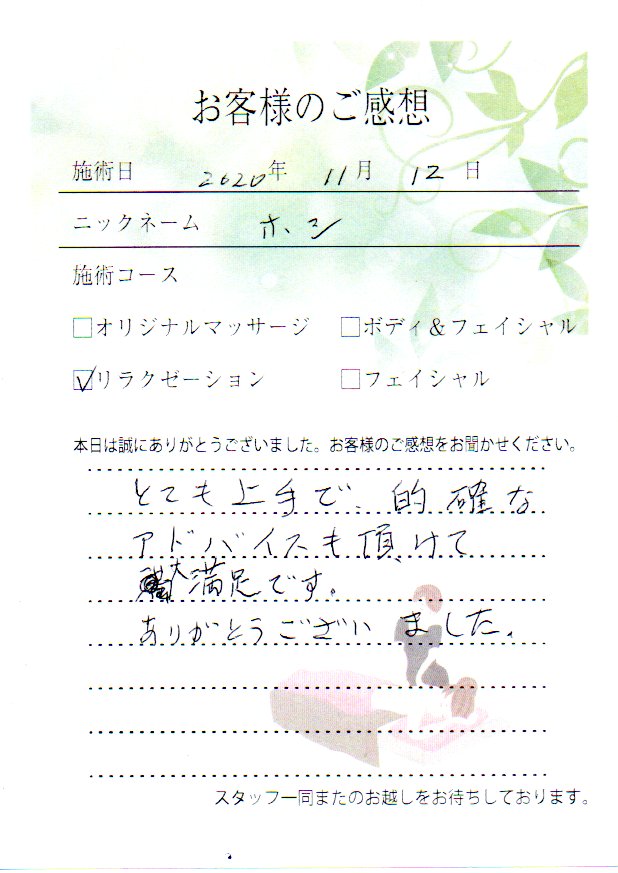 お客様のご感想
施術日 2020年 11月 12日
ニックネーム ホシ
施術コース
□オリジナルマッサージ □ボディ&フェイシャル
☑リラクゼーション □フェイシャル
本日は誠にありがとうございました。お客様のご感想をお聞かせください。
とても上手で、的確な
アドバイスも頂けて
大満足です。
ありがとうございました。
スタッフ一同またのお越しをお待ちしております。